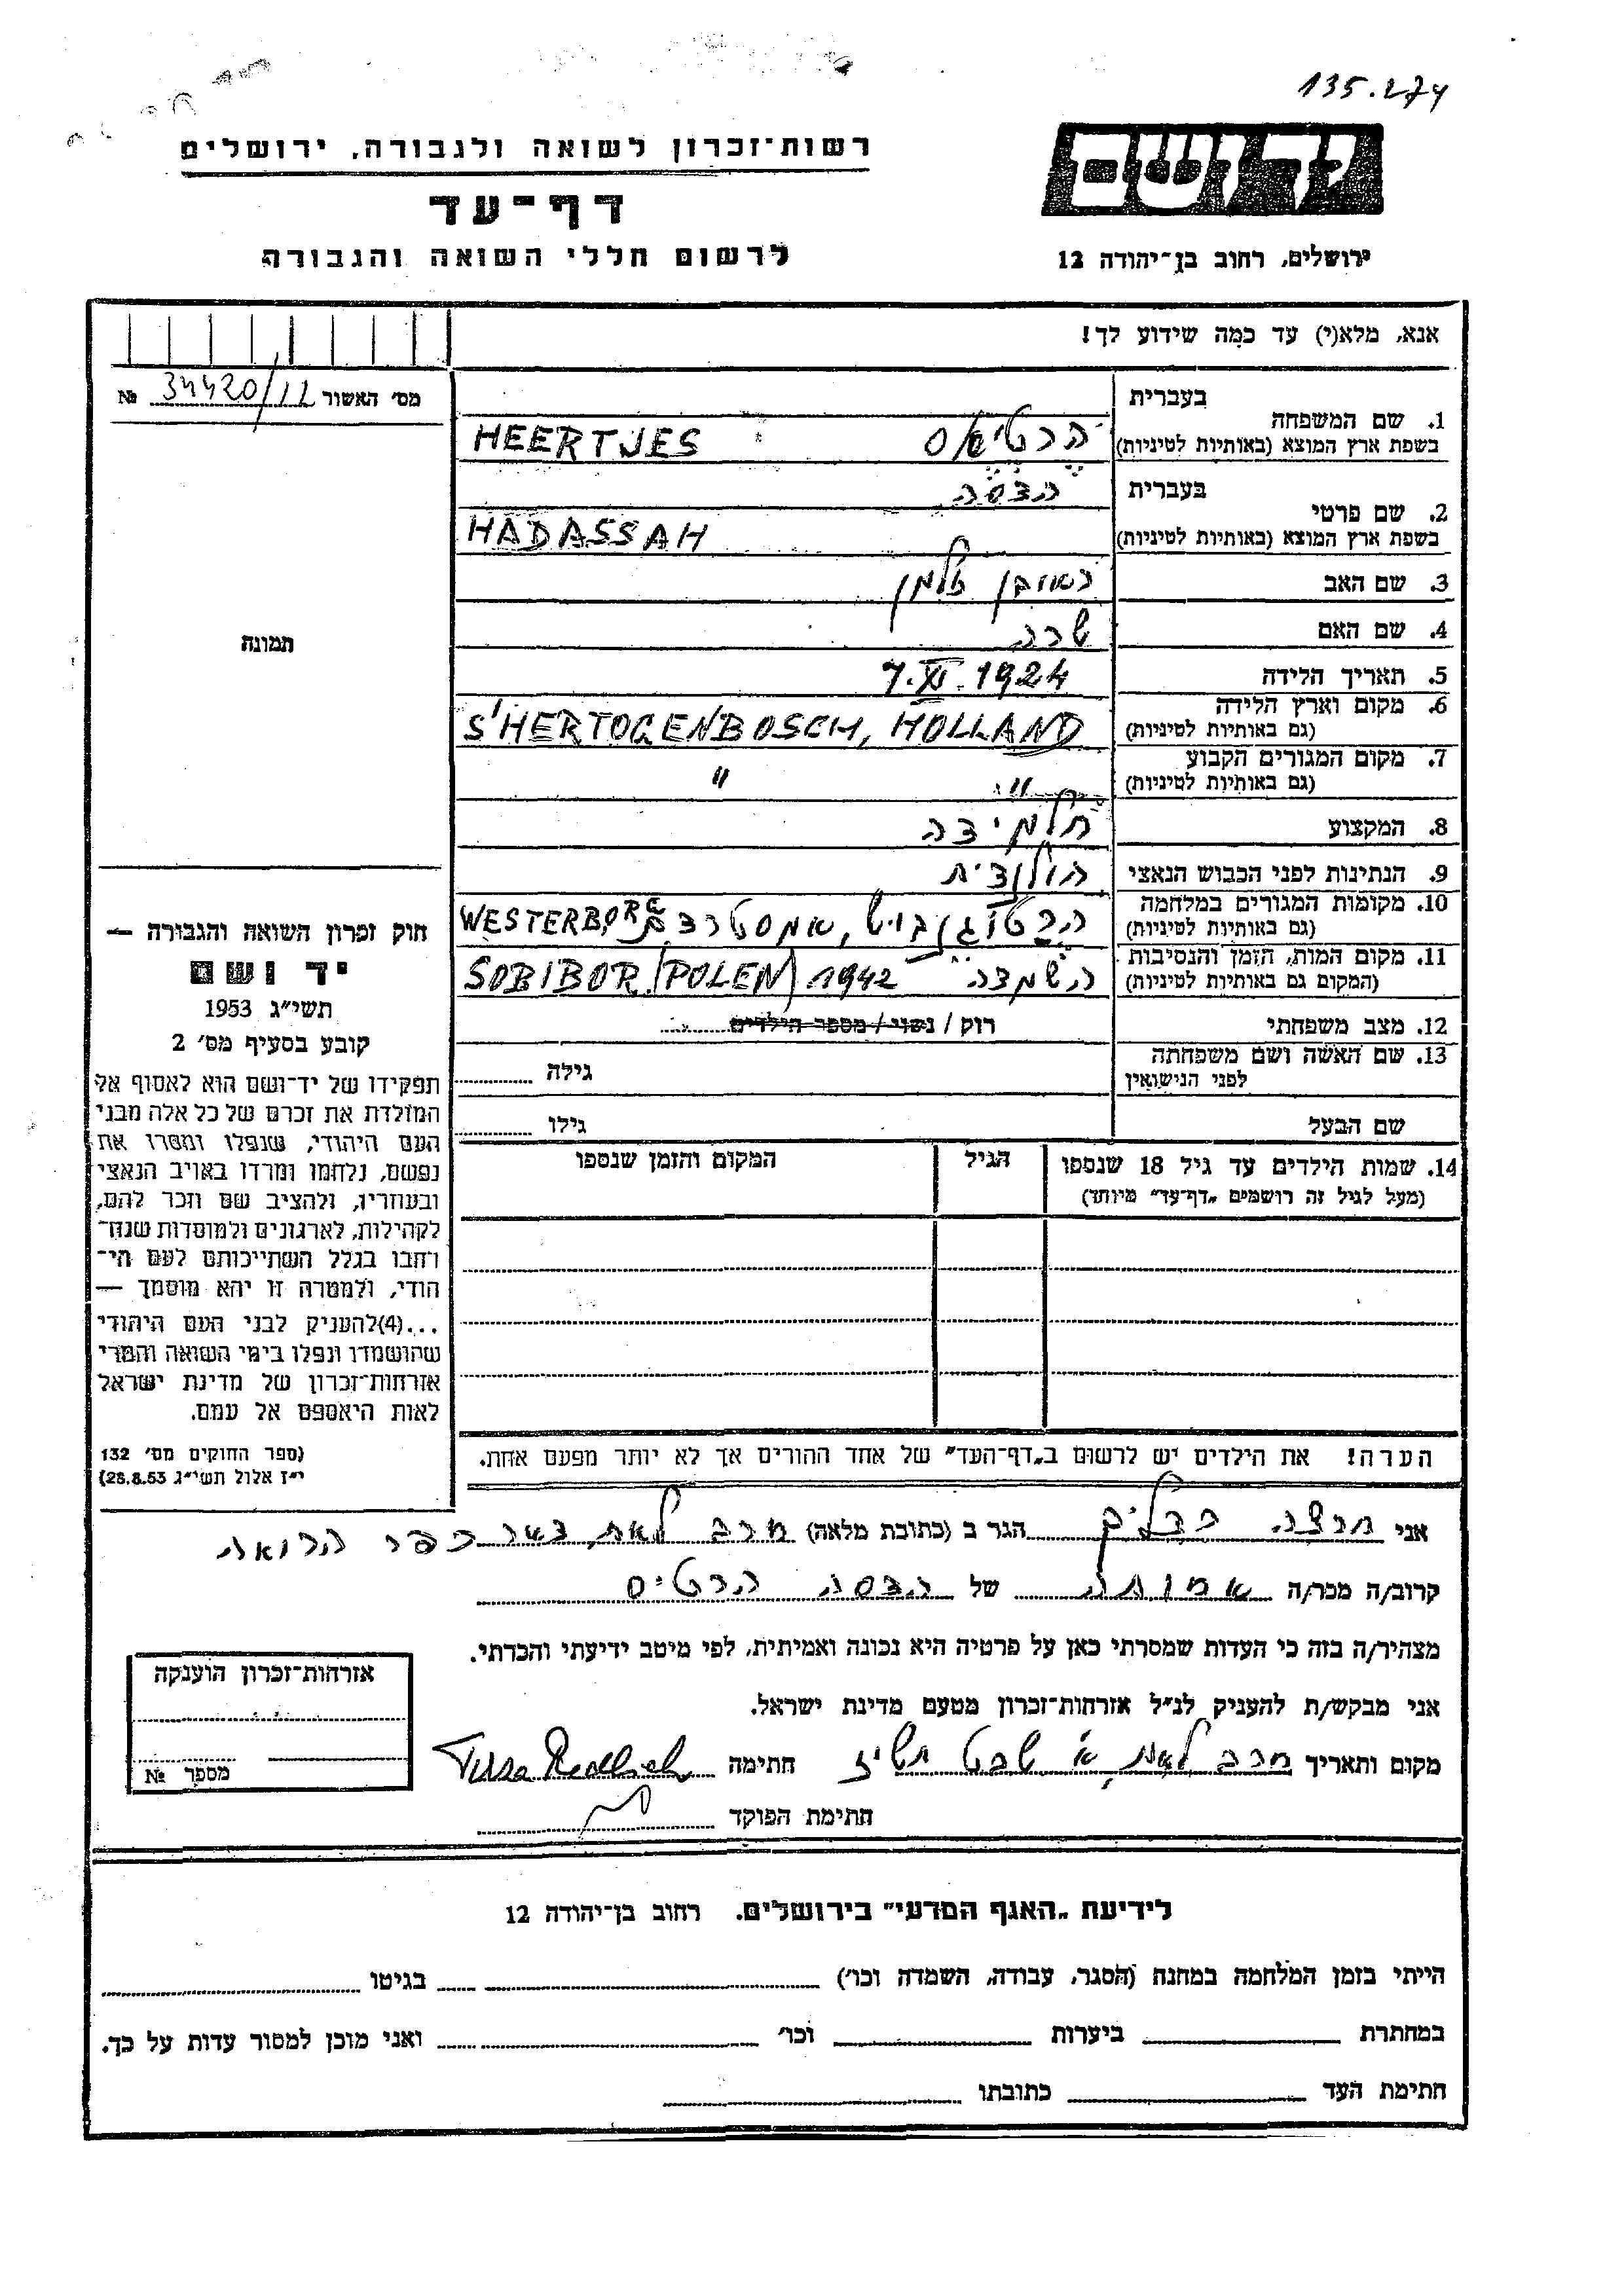 135.274
יד ושם
רשות־זכרון לשואה ולגבורה, ירושלים
דף־עד
לרשום חללי השואה והגבורה
ירושלים, רחוב בן־יהודה 12
אנא, מלא(י) עד כמה שידוע לך!
מס׳ האשור 34420/12 №
1. שם המשפחה בעברית
בשפת ארץ המוצא (באותיות לטיניות)
HEERTJES
2. שם פרטי בעברית הדסה
בשפת ארץ המוצא (באותיות לטיניות) HADASSAH
3. שם האב ראובן זלמן
4. שם האם שרה
5. תאריך הלידה 7.XI.1924
6. מקום וארץ הלידה
(גם באותיות לטיניות) S'HERTOGENBOSCH, HOLLAND
7. מקום המגורים הקבוע
(גם באותיות לטיניות) " "
8. המקצוע תלמידה
9. הנתינות לפני הכבוש הנאצי הולנדית
10. מקומות המגורים במלחמה
(גם באותיות לטיניות) הרטוגנבוש, אמסטרדם WESTERBORG
11. מקום המות, הזמן והנסיבות
(המקום גם באותיות לטיניות) השמדה 1942 SOBIBOR (POLEN)
12. מצב משפחתי רוק / נשוי / מספר הילדים
13. שם האשה ושם משפחתה
לפני הנישואין גילה
שם הבעל גילו
14. שמות הילדים עד גיל 18 שנספו הגיל המקום והזמן שנספו
(מעל לגיל זה רושמים „דף־עד״ מיוחד)
הערה! את הילדים יש לרשום ב„דף־העד״ של אחד ההורים אך לא יותר מפעם אחת.
תמונה
חוק זכרון השואה והגבורה —
יד ושם
תשי״ג 1953
קובע בסעיף מס׳ 2
תפקידו של יד־ושם הוא לאסוף אל
המולדת את זכרם של כל אלה מבני
העם היהודי, שנפלו ומסרו את
נפשם, נלחמו ומרדו באויב הנאצי
ובעוזריו, ולהציב שם וזכר להם,
לקהילות, לארגונים ולמוסדות שנח־
רחבו בגלל השתייכותם לעם הי־
הודי, ולמטרה זו יהא מוסמך —
...(4) להעניק לבני העם היהודי
שהושמדו ונפלו בימי השואה והמרי
אזרחות־זכרון של מדינת ישראל
לאות היאספם אל עמם.
(ספר החוקים מס׳ 132
י״ז אלול תשי״ג 28.8.53)
אני הגר ב (כתובת מלאה) כפר הרואה
קרוב/ה מכר/ה של הדסה הרטיס
מצהיר/ה בזה כי העדות שמסרתי כאן על פרטיה היא נכונה ואמיתית, לפי מיטב ידיעתי והכרתי.
אני מבקש/ת להעניק לנ״ל אזרחות־זכרון מטעם מדינת ישראל.
מקום ותאריך שבט חתימה
חתימת הפוקד
אזרחות־זכרון הוענקה
מספר №
לידיעת „האגף המדעי״ בירושלים. רחוב בן־יהודה 12
הייתי בזמן המלחמה במחנה (הסגר, עבודה, השמדה וכו׳) בגיטו
במחתרת ביערות וכו׳ ואני מוכן למסור עדות על כך.
חתימת העד כתובתו